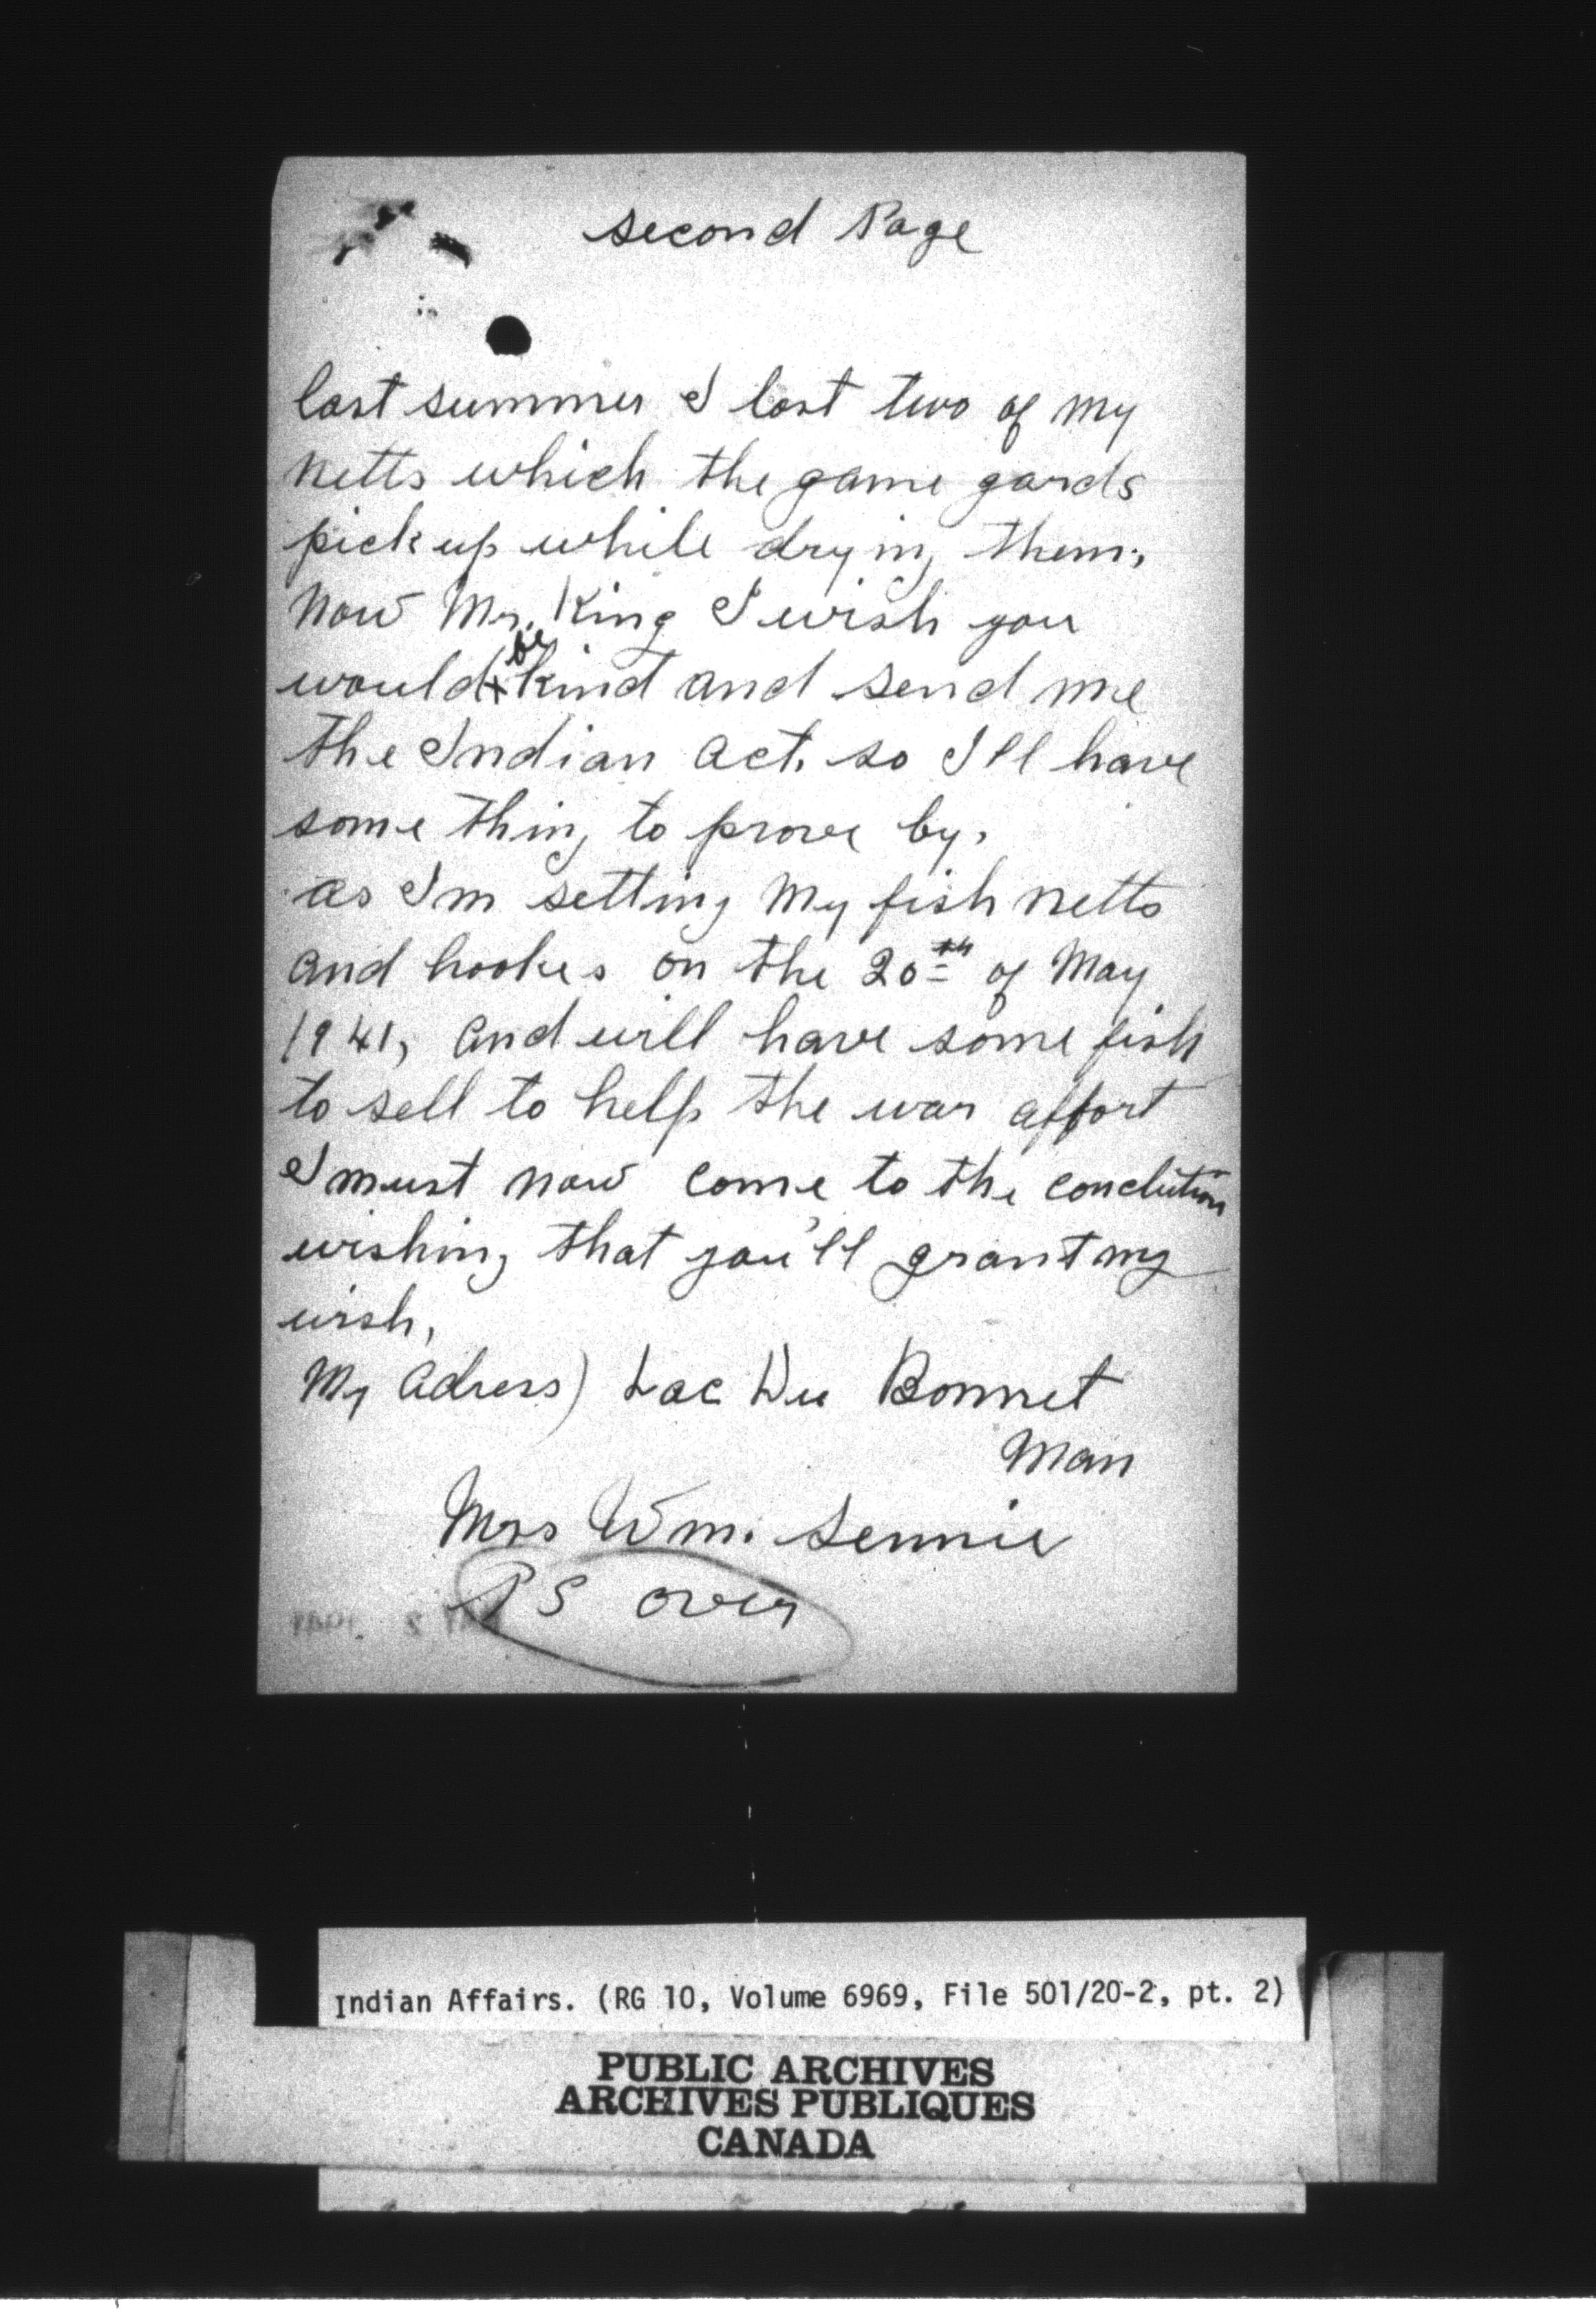 second Page
last summer I lost two of my
netts which the game gards
pick up while drying them,
Now Mr. King I wish you
would be kind and send me
the Indian act. so I'll have
some thing to prove by,
as I'm setting My fish netts
and hookes on the 20th of May
1941, and will have some fish
to sell to help the war affort
I must now come to the conclution
wishing that you'll grant my
wish,
My adress) Lac Du Bonnet
Man
Mrs Wm. Sennie
PS over
Indian Affairs. (RG 10, Volume 6969, File 501/20-2, pt. 2)
PUBLIC ARCHIVES
ARCHIVES PUBLIQUES
CANADA